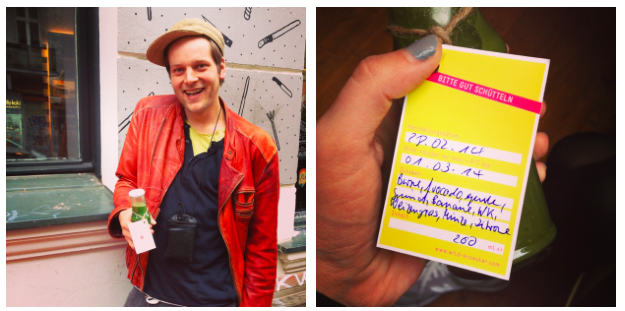 BITTE GUT SCHÜTTELN
27.02.14
01.03.14
Birne, Avocado, Gurke,
Spinat, Banane, WK,
Weizengras, Minze, Zitrone
200 ml